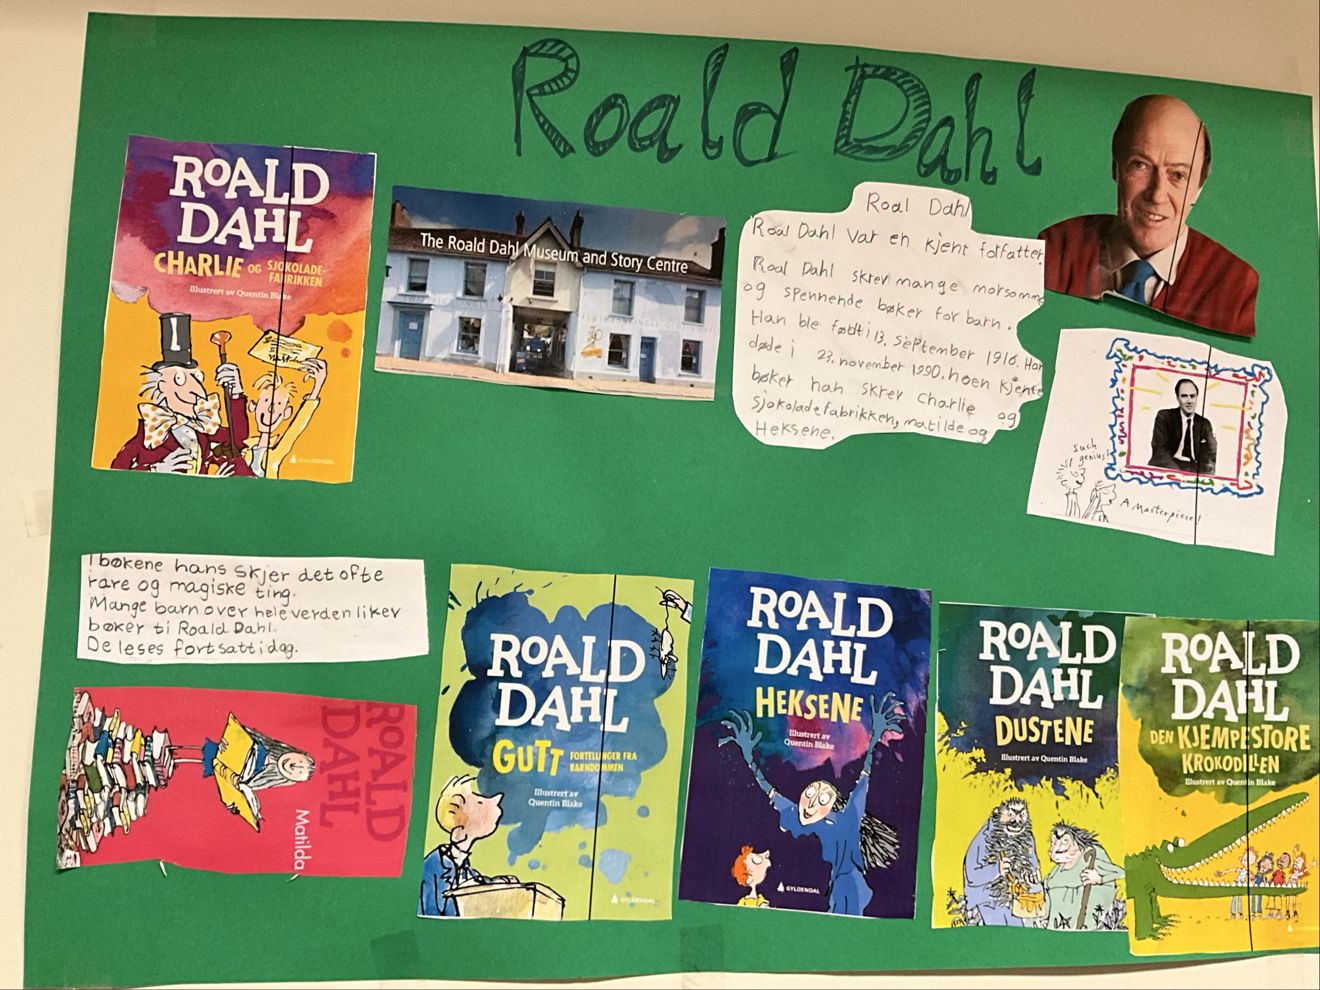 Roald Dahl
ROALD
DAHL
CHARLIE OG SJOKOLADE-
FABRIKKEN
Illustrert av Quentin Blake
GYLDENDAL
The Roald Dahl Museum and Story Centre
Roal Dahl
Roal Dahl var en kjent forfatter
Roal Dahl skrev mange morsomme
og spennende bøker for barn.
Han ble født i 13. september 1916. Han
døde i 23. november 1990. noen kjente
bøker han skrev Charlie og
sjokoladefabrikken, matilde og
Heksene.
Such
genius!
A Masterpiece!
I bøkene hans skjer det ofte
rare og magiske ting.
Mange barn over hele verden liker
bøker ti Roald Dahl.
De leses fortsatt idag.
ROALD
DAHL
Matilda
ROALD
DAHL
GUTT FORTELLINGER FRA
BARNDOMMEN
Illustrert av
Quentin Blake
GYLDENDAL
ROALD
DAHL
HEKSENE
Illustrert av
Quentin Blake
GYLDENDAL
ROALD
DAHL
DUSTENE
Illustrert av Quentin Blake
ROALD
DAHL
DEN KJEMPESTORE
KROKODILLEN
Illustrert av Quentin Blake